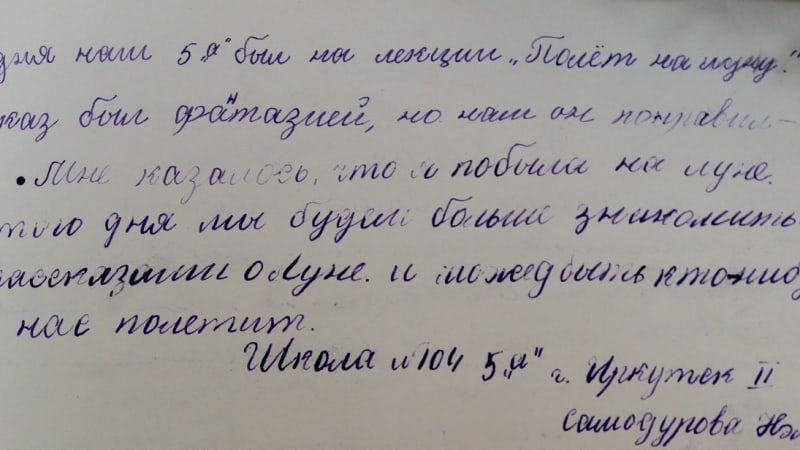 дня наш 5 „а" был на лекции „Полёт на луну."
каз был фантазией, но нам он понравил-
. Мне казалось, что я побыла на луне.
того дня мы будем больше знакомить
рассказами о Луне. и может быть кто-ниб
нас полетит.
Школа №104 5 „а" г. Иркутск II
Самодурова Нэ